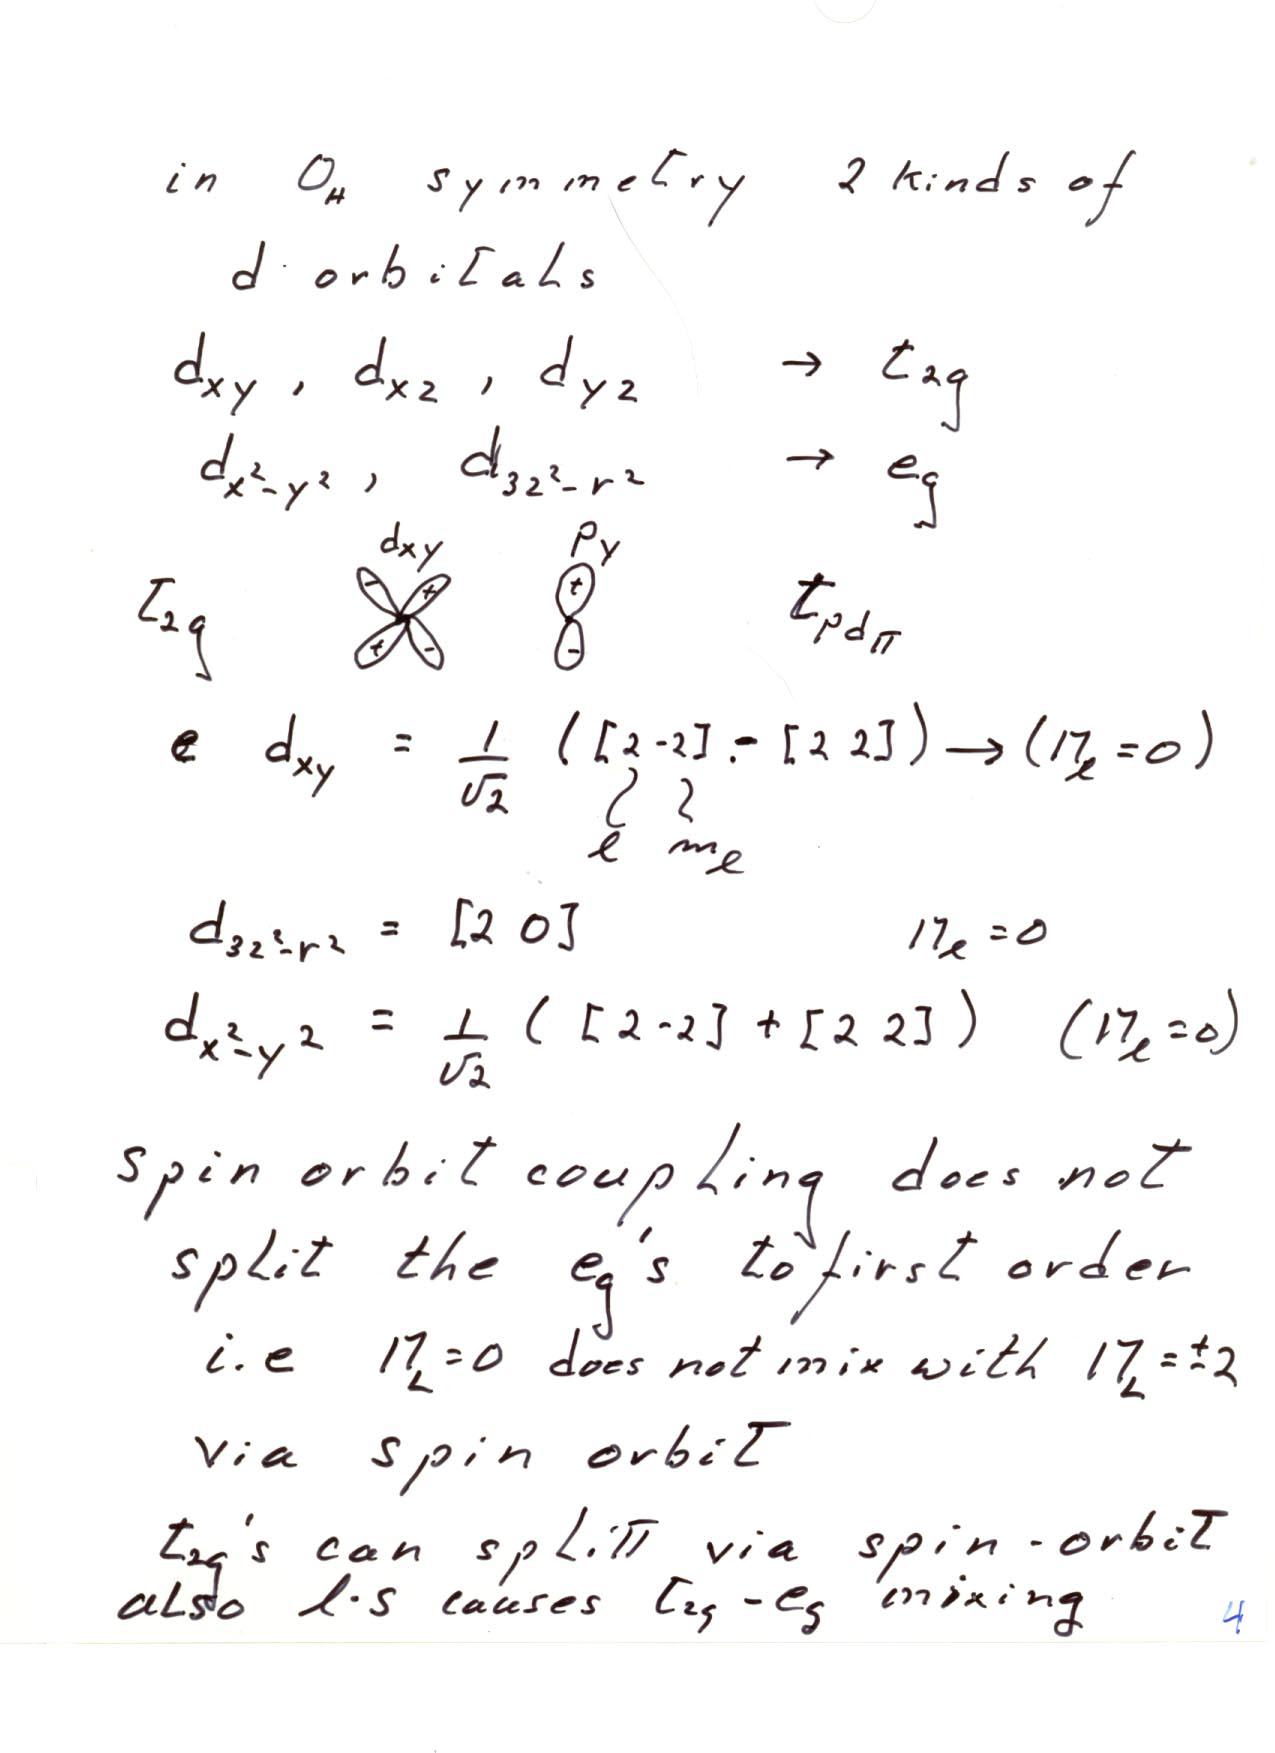 in O_H symmetry 2 kinds of
d orbitals
d_xy, d_xz, d_yz → t_2g
d_x²-y², d_3z²-r² → e_g
d_xy P_y
t_2g - + + - + - t_pdπ
e d_xy = 1/√2 ([2 -2] - [2 2]) → (M_l = 0)
l m_l
d_3z²-r² = [2 0] M_l = 0
d_x²-y² = 1/√2 ([2 -2] + [2 2]) (M_l = 0)
spin orbit coupling does not
split the e_g's to first order
i.e M_L = 0 does not mix with M_L = ±2
via spin orbit
t_2g's can split via spin-orbit
also l·s causes t_2g - e_g mixing
4